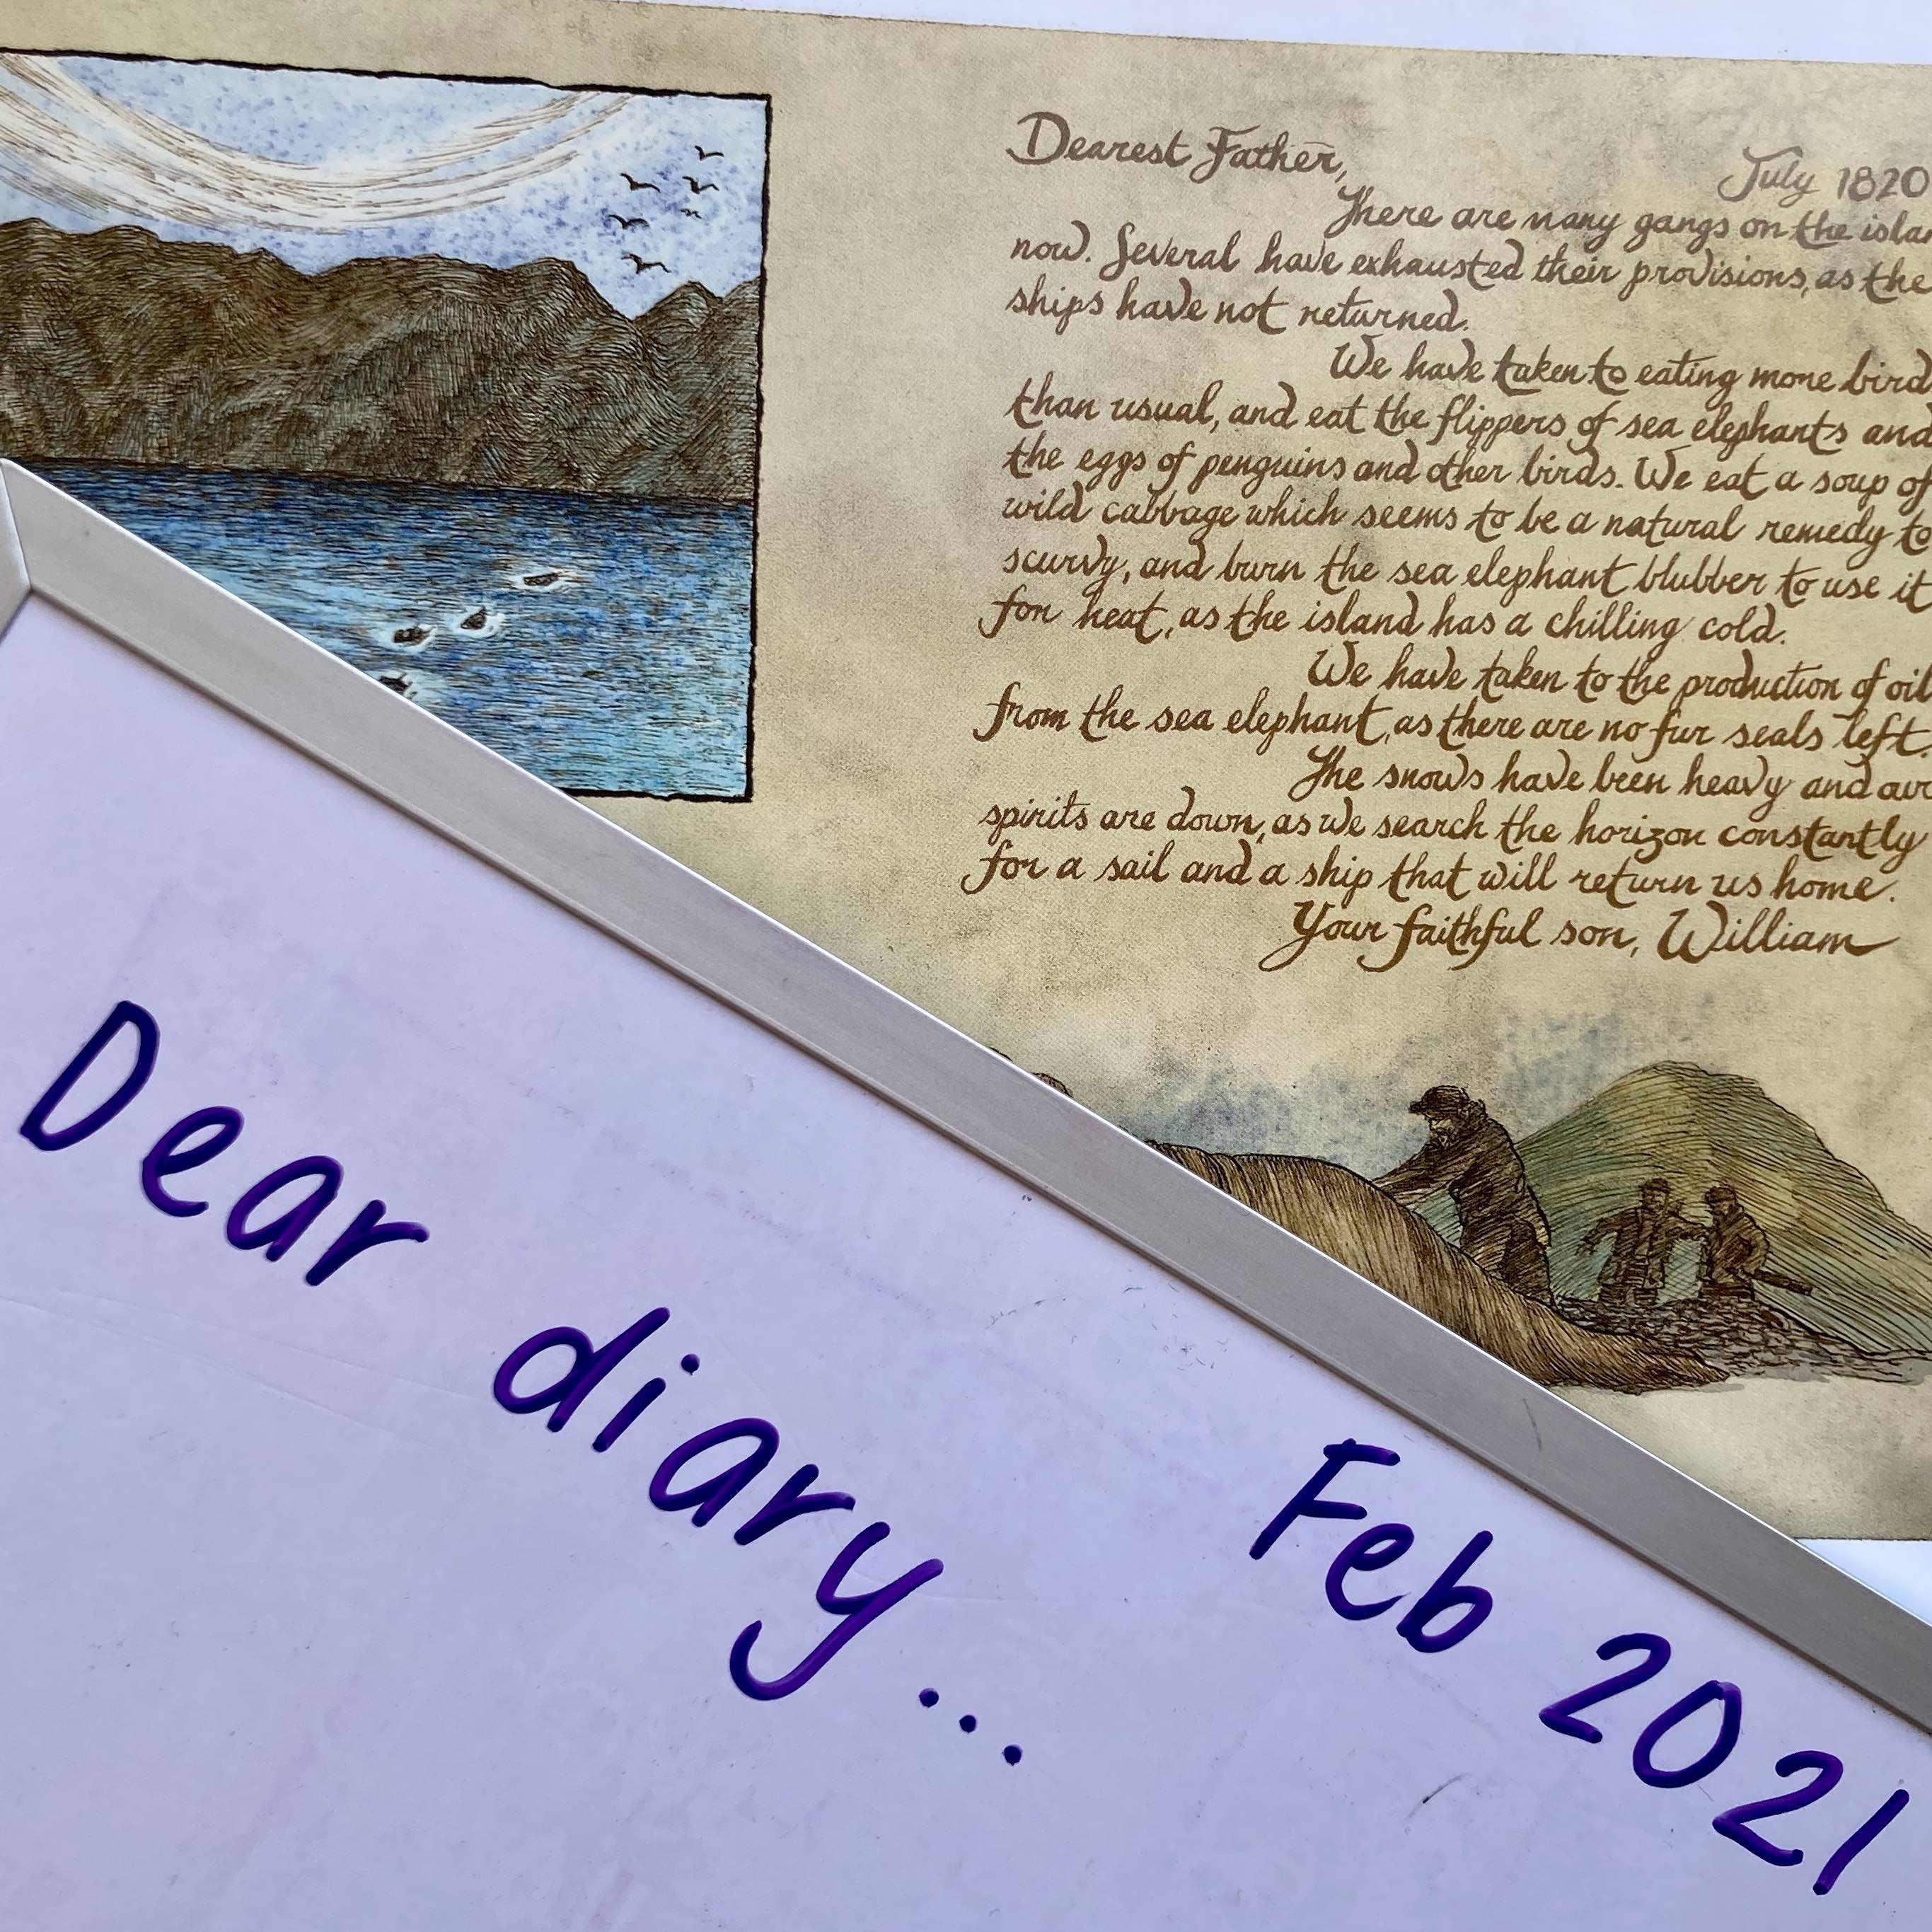 Dearest Father,
July 1820
There are many gangs on the
now. Several have exhausted their provisions, as the
ships have not returned.
We have taken to eating more bird
than usual, and eat the flippers of sea elephants and
the eggs of penguins and other birds. We eat a soup of
wild cabbage which seems to be a natural remedy to
scurvy, and burn the sea elephant blubber to use it
for heat, as the island has a chilling cold.
We have taken to the production of oil
from the sea elephant, as there are no fur seals left.
The snows have been heavy and our
spirits are down, as we search the horizon constantly
for a sail and a ship that will return us home.
Your faithful son, William
Dear diary...
Feb 2021